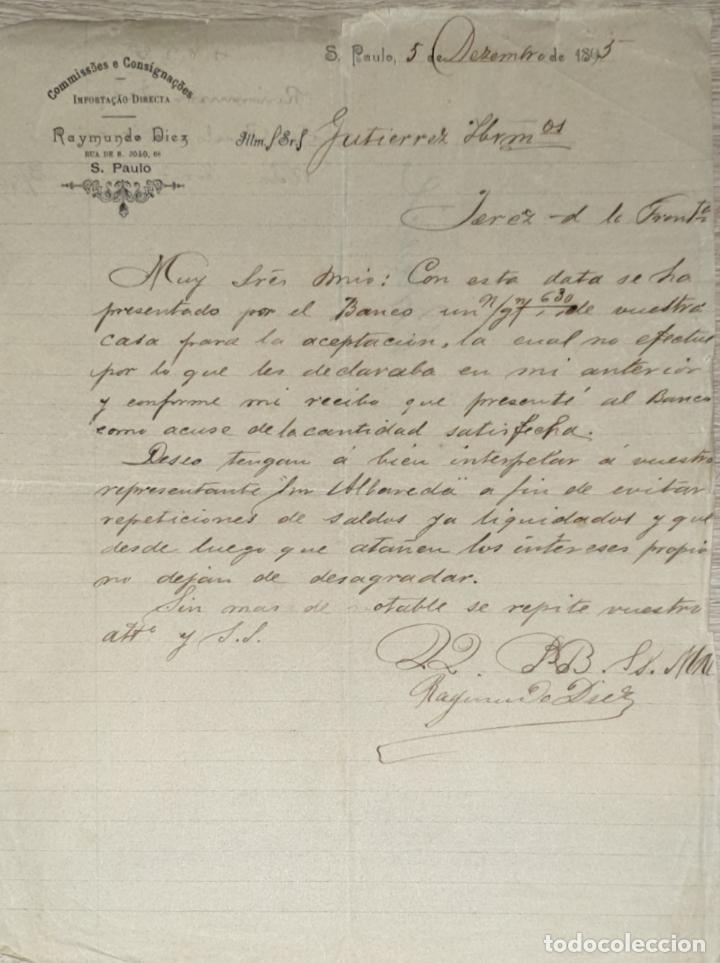 S. Paulo, 5 de Dezembro de 1895
Commissões e Consignações
IMPORTAÇÃO DIRECTA
Raymundo Diez
RUA DE S. JOÃO, 61
S. Paulo
Illm. Srs Gutierrez Hermos
Jerez d la Fronta
Muy Srés mio: Con esta data se ha
presentado por el Banco un n/g n/ 630 de vuestra
casa para la aceptacion, la cual no efectue
por lo que les declaraba en mi anterior
y conforme mi recibo que presenté al Banco
como acuse de la cantidad satisfecha.
Deseo tengan á bien interpelar á vuestro
representante Albareda a fin de evitar
repeticiones de saldos ya liquidados y que
desde luego que atañen los intereses propio
no dejan de desagradar.
Sin mas de notable se repite vuestro
atto y S.S.
Q.Q. B.B. Ss. Mn
Raymundo Diez
todocoleccion